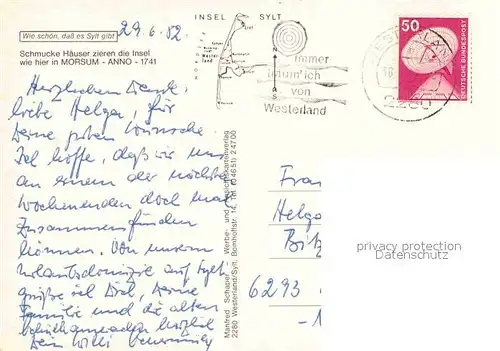 Wie schön, daß es Sylt gibt
29.6.82
Schmucke Häuser zieren die Insel
wie hier in MORSUM - ANNO - 1741
INSEL SYLT
Immer
träum' ich
von
Westerland
N
S
50
DEUTSCHE BUNDESPOST
2280
Herzlichen Dank,
liebe Helga, für
Deine guten Wünsche.
Ich hoffe, daß wir uns
an einem der nächsten
Wochenenden doch mal
zusammenfinden
können. Von unserm
Urlaubsdomizil auf Sylt
grüße ich Dich, Deine
Familie und die alten
herzlich
Dein Willi
Manfred Schaper Werbe- und Ansichtskartenverlag
2280 Westerland/Sylt, Bomhoffstr. 14, Tel. (04651) 24700
Frau
Helga
6293
privacy protection
Datenschutz